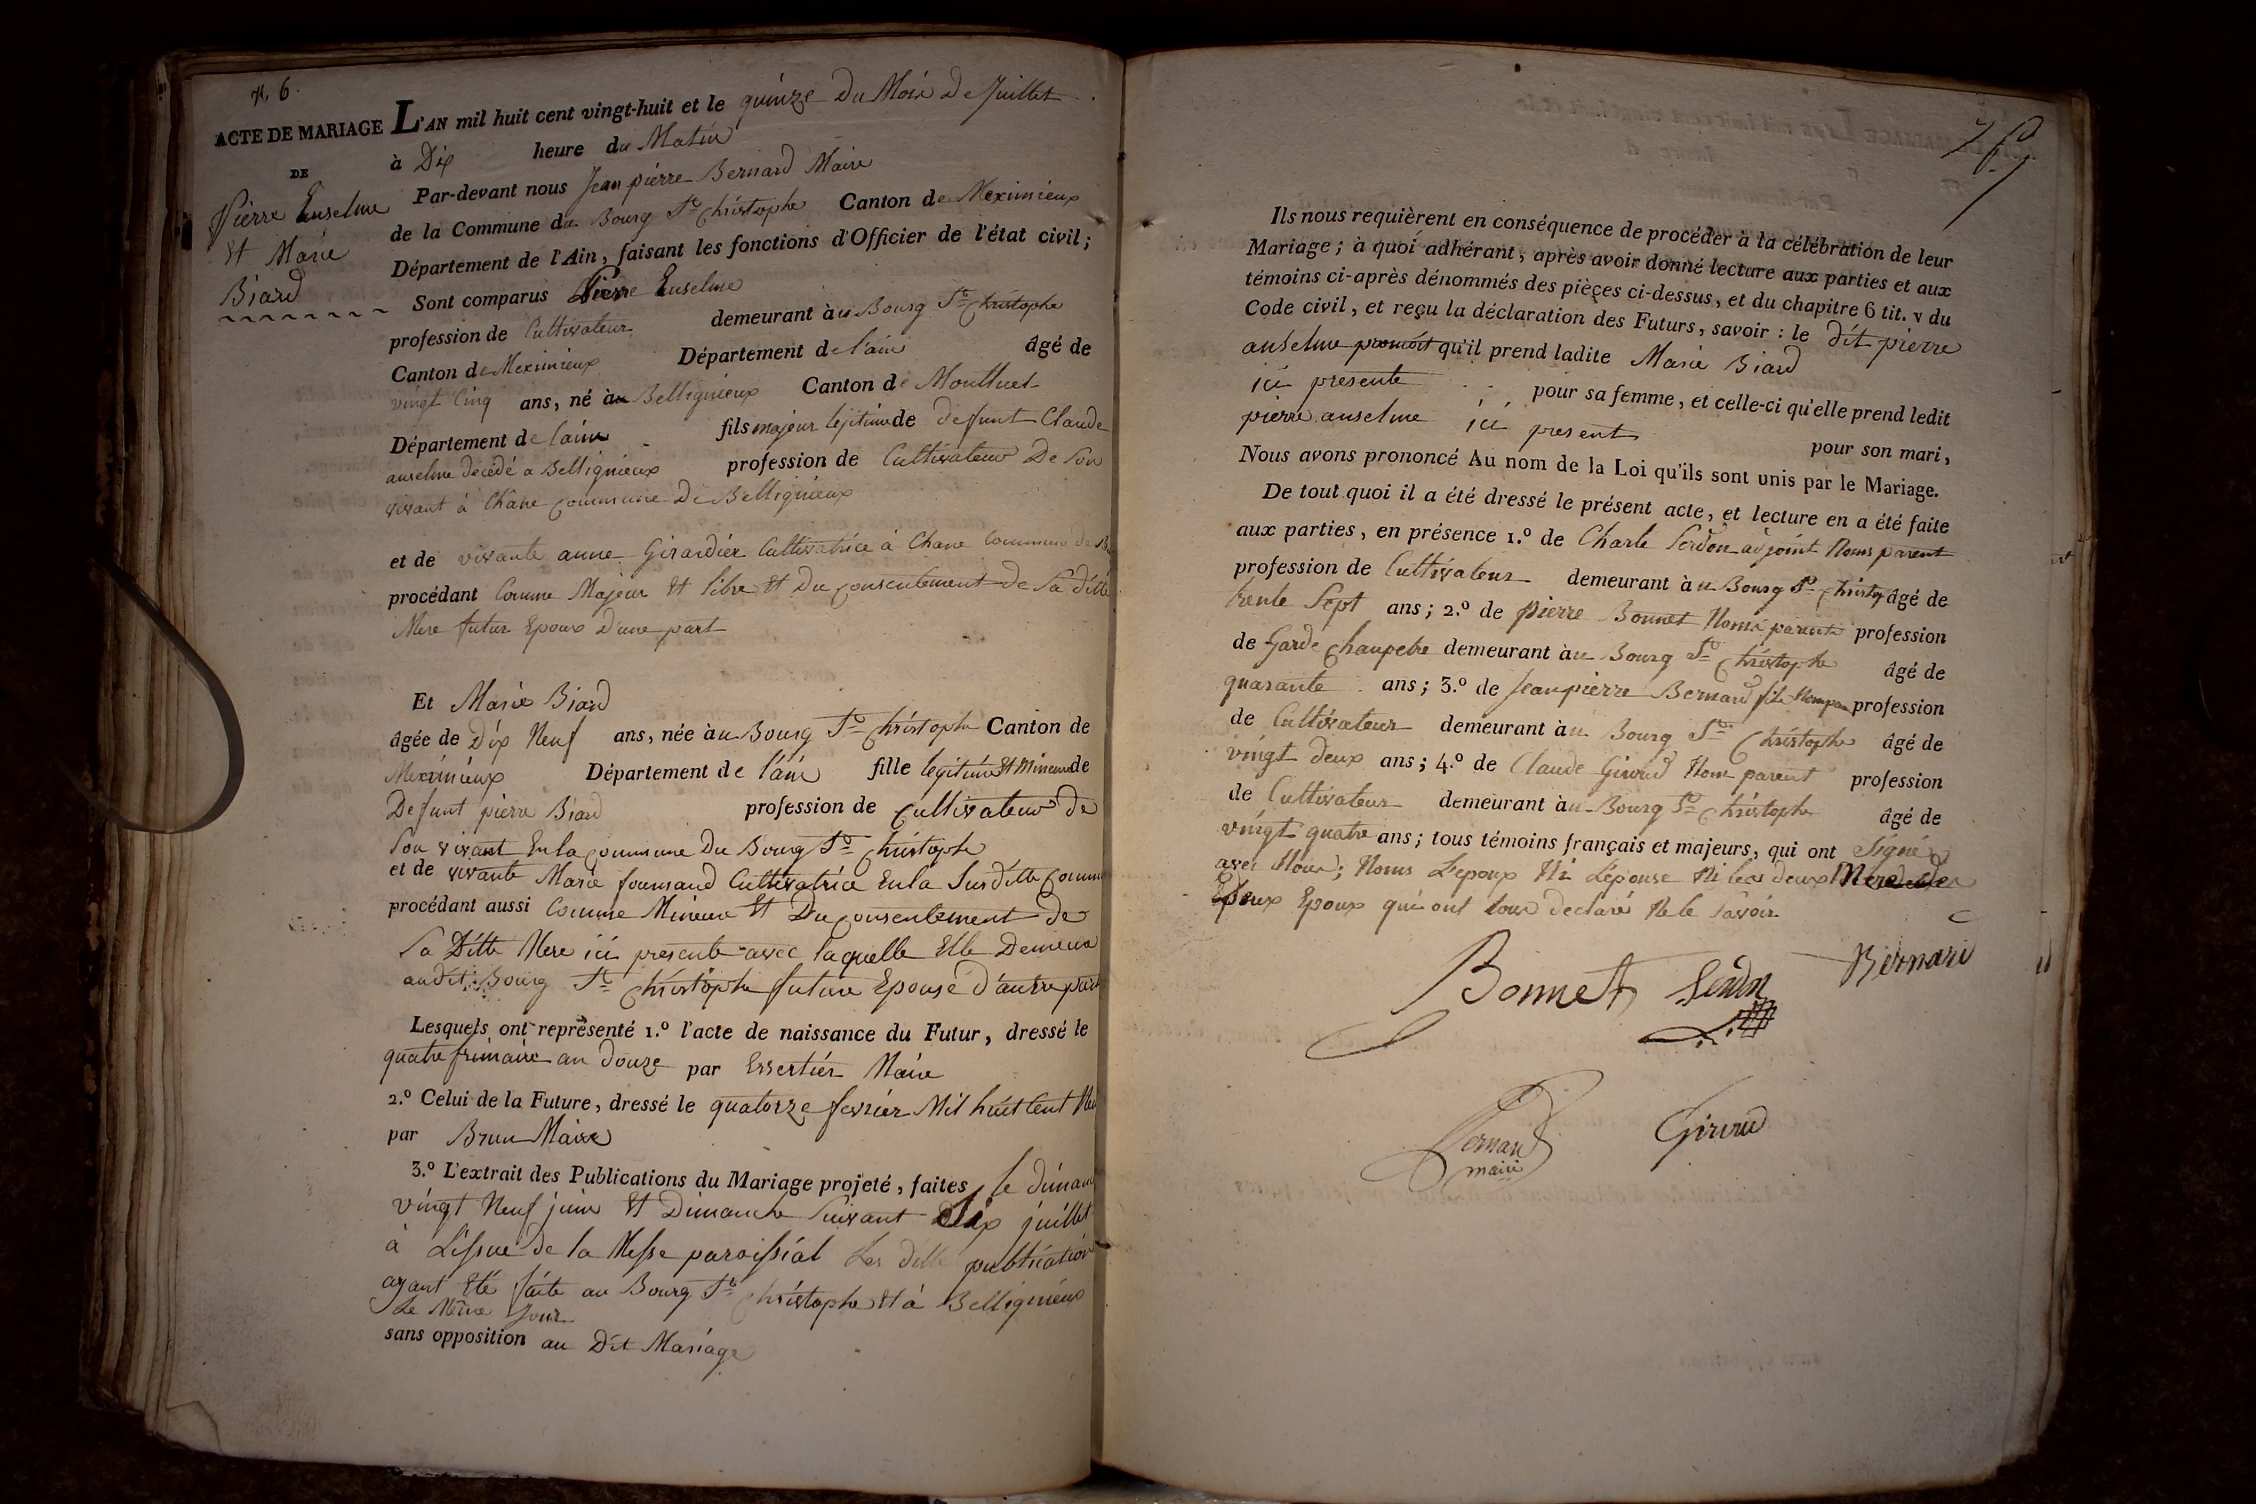 N. 6.
ACTE DE MARIAGE
DE
Pierre Anselme
Et Marie
Biard
L'AN mil huit cent vingt-huit et le quinze Du Mois De Juillet
à Dix heure du Matin
Par-devant nous Jean pierre Bernard Maire
de la Commune du Bourg St Christophe Canton de Meximieux
Département de l'Ain, faisant les fonctions d'Officier de l'état civil;
Sont comparus Pierre Anselme
profession de Cultivateur demeurant au Bourg St Christophe
Canton de Meximieux Département de l'ain âgé de
vingt Cinq ans, né à Belligneux Canton de Montluel
Département de l'ain fils majeur légitime de defunt Claude
anselme décédé a Belligneux profession de Cultivateur De son
vivant à Chane Commune De Belligneux
et de vivante anne Girardier Cultivatrice à Chane Commune de
procédant Comme Majeur Et libre Et Du consentement De Sa ditte
Mere futur Epoux D'une part
Et Marie Biard
âgée de Dix Neuf ans, née au Bourg St Christophe Canton de
Meximieux Département de l'ain fille legitime Et Mineure de
Defunt pierre Biard profession de Cultivateur de
Son vivant En la Commune Du Bourg St Christophe
et de vivante Marie Cultivatrice En la Susditte Commune
procédant aussi Comme Mineure Et Du consentement de
Sa Ditte Mere ici presente avec laquelle Elle Demeure
audit Bourg St Christophe future Epouse d'autre part
Lesquels ont représenté 1.º l'acte de naissance du Futur, dressé le
quatre frimaire an Douze par Essertier Maire
2.º Celui de la Future, dressé le quatorze fevrier Mil huit Cent
par Brun Maire
3.º L'extrait des Publications du Mariage projeté, faites le
vingt Neuf juin Et Dimanche Suivant Six juillet
à L'issue de la Messe paroissial Les ditte publication
ayant Eté faite au Bourg St Christophe Et à Belligneux
Le Même Jour
sans opposition au Dit Mariage
Ils nous requièrent en conséquence de procéder à la célébration de leur
Mariage; à quoi adhérant, après avoir donné lecture aux parties et aux
témoins ci-après dénommés des pièces ci-dessus, et du chapitre 6 tit. v du
Code civil, et reçu la déclaration des Futurs, savoir : le dit pierre
anselme qu'il prend ladite Marie Biard
ici presente pour sa femme, et celle-ci qu'elle prend ledit
pierre anselme ici present pour son mari,
Nous avons prononcé Au nom de la Loi qu'ils sont unis par le Mariage.
De tout quoi il a été dressé le présent acte, et lecture en a été faite
aux parties, en présence 1.º de Charle Serdon adjoint Noms parent
profession de Cultivateur demeurant au Bourg St âgé de
trente Sept ans; 2.º de pierre Bonnet Noms parent profession
de Garde Champetre demeurant au Bourg St Christophe âgé de
quarante ans; 3.º de Jeanpierre Bernard fils profession
de Cultivateur demeurant au Bourg St Christophe âgé de
vingt deux ans; 4.º de Claude Giroud Nom parent profession
de Cultivateur demeurant au Bourg St Christophe âgé de
vingt quatre ans; tous témoins français et majeurs, qui ont Signé
avec Nous; Noms L'epoux Ni L'épouse Ni les deux Mere des
Epoux qui ont tous declaré Ne le savoir
Bonnet Serdon Bernard
Bernard Giroud
maire